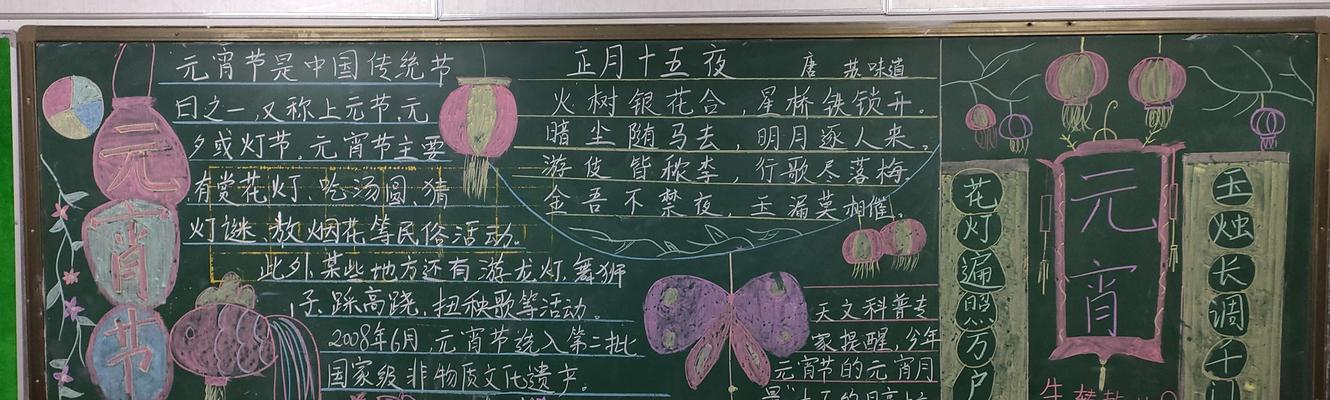 元宵节
元宵节是中国传统节
日之一,又称上元节,元
夕或灯节。元宵节主要
有赏花灯、吃汤圆、猜
灯谜、放烟花等民俗活动。
此外,某些地方还有游龙灯、舞狮
子、踩高跷、扭秧歌等活动。
2008年6月,元宵节选入第二批
国家级非物质文化遗产。
正月十五夜 唐 苏味道
火树银花合,星桥铁锁开。
暗尘随马去,明月逐人来。
游伎皆秾李,行歌尽落梅,
金吾不禁夜,玉漏莫相催。
天文科普专
家提醒,今年
元宵节的元宵月
花灯遍照万户
元宵
玉烛长调千门